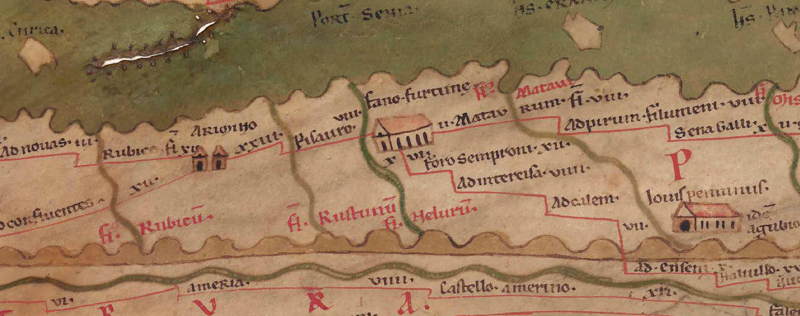 Curica.
Port. Sena.
Ad novas. iii.
Rubico fl. xii
Arimino
xxiii.
Pisauro.
viii.
fano furtune
fl.
Matavr
ii. Matav
rum. fl. viii.
Ad pirum filumeni. viii
Sena Galli. x
fl.
x vi.
foro Semproni. xii.
Ad intercisa. viiii.
Ad calem.
vii.
P
Iovis penninus.
id e
agubio
ad confluentes.
xii.
fl. Rubicū.
fl. Rusturum
fl. Neturū.
ad. ensem.
vi.
ameria.
viiii.
Castello amerino.
xii.
P V R A.